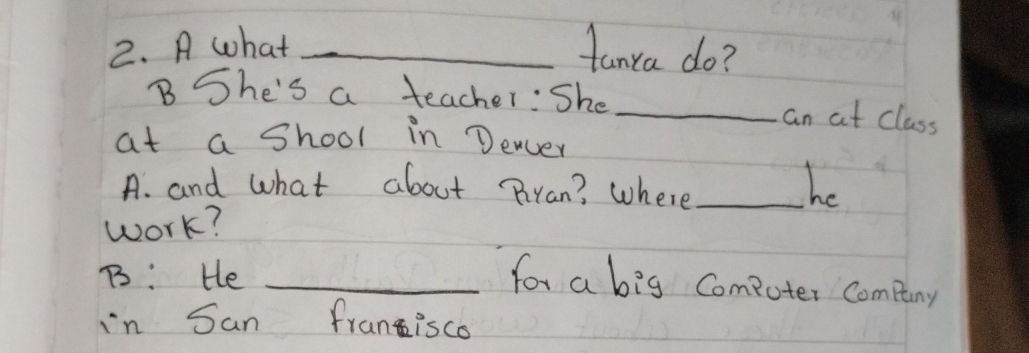 2. A what __________ tanya do?
B She's a teacher: She ________ an at class
at a Shool in Denver
A. and what about Ryan? Where _____ he
work?
B: He __________ for a big Computer Company
in San fransisco